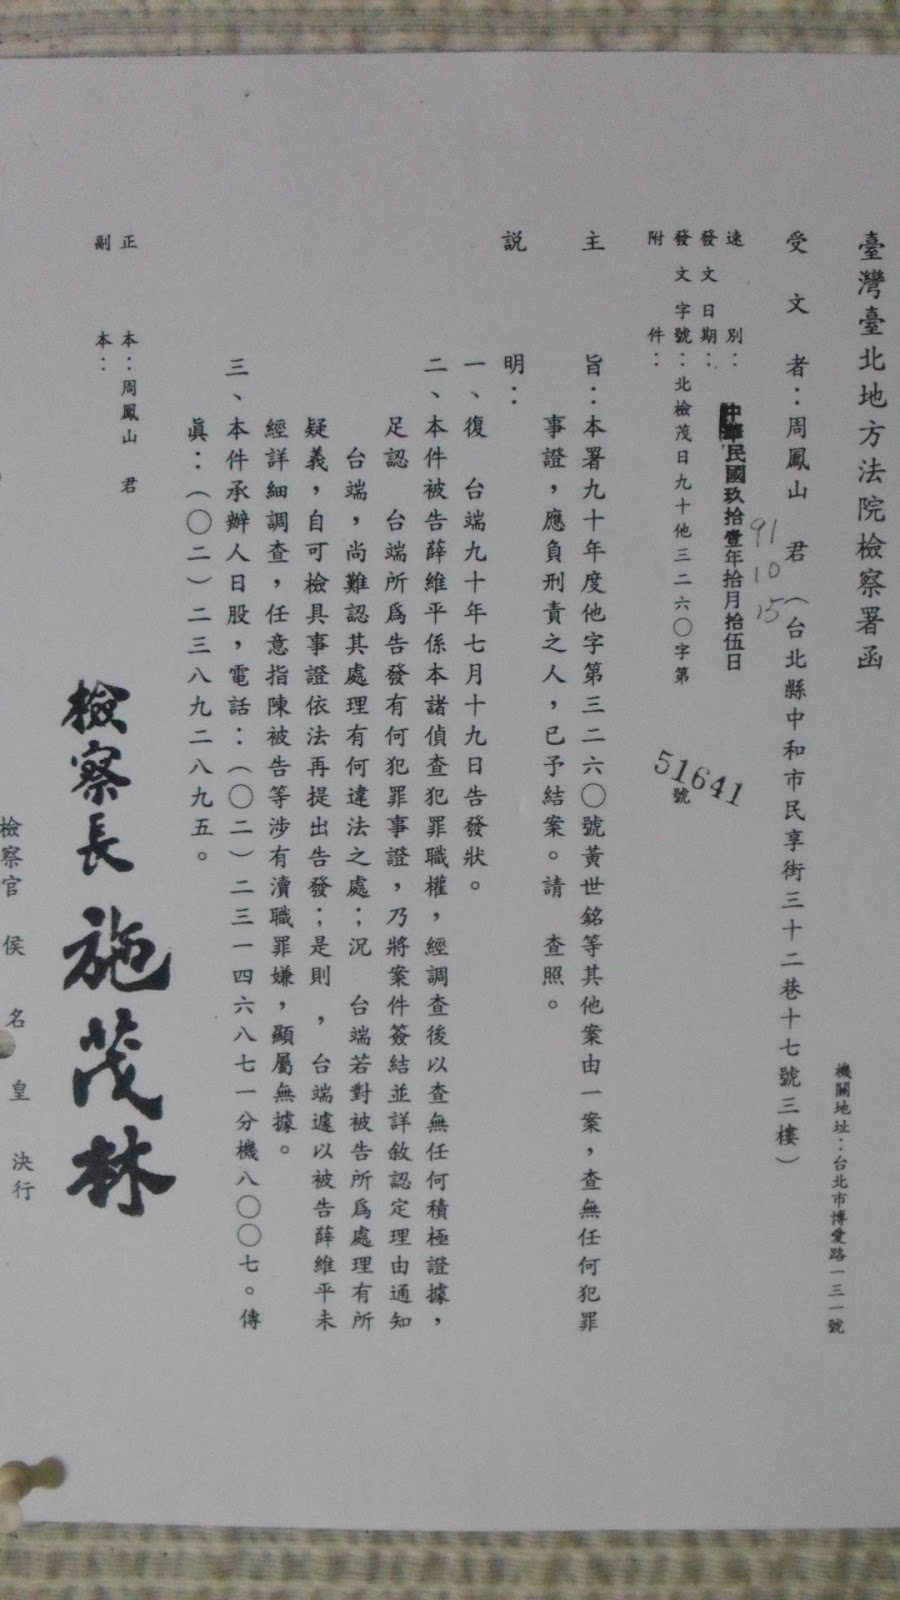 臺灣臺北地方法院檢察署函
機關地址：台北市博愛路一三一號
受文者：周鳳山 君（台北縣中和市民享街三十二巷十七號三樓）
91 10 15
速別：
發文日期：中華民國玖拾壹年拾月拾伍日
發文字號：北檢茂日九十他三二六〇字第51641號
附件：
主旨：本署九十年度他字第三二六〇號黃世銘等其他案由一案，查無任何犯罪
事證，應負刑責之人，已予結案。請 查照。
說明：
一、復 台端九十年七月十九日告發狀。
二、本件被告薛維平係本諸偵查犯罪職權，經調查後以查無任何積極證據，
足認 台端所爲告發有何犯罪事證，乃將案件簽結並詳敘認定理由通知
台端，尚難認其處理有何違法之處；況 台端若對被告所爲處理有所
疑義，自可檢具事證依法再提出告發；是則 ，台端遽以被告薛維平未
經詳細調查，任意指陳被告等涉有瀆職罪嫌，顯屬無據。
三、本件承辦人日股，電話：（〇二）二三一四六八七一分機八〇〇七。傳
眞：（〇二）二三八九二八九五。
正本：周鳳山 君
副本：
檢察長 施茂林
檢察官 侯名皇 決行